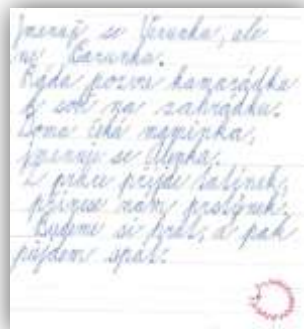 Jmenuji se Verunka, ale
ne Barunka.
Ráda pozve kamarádku
k sobě na zahrádku.
Doma čeká maminka,
jmenuje se Alenka.
Z práce přijde tatínek,
přinese nám prstýnek.
Budeme si hrát, a pak
půjdem spát.